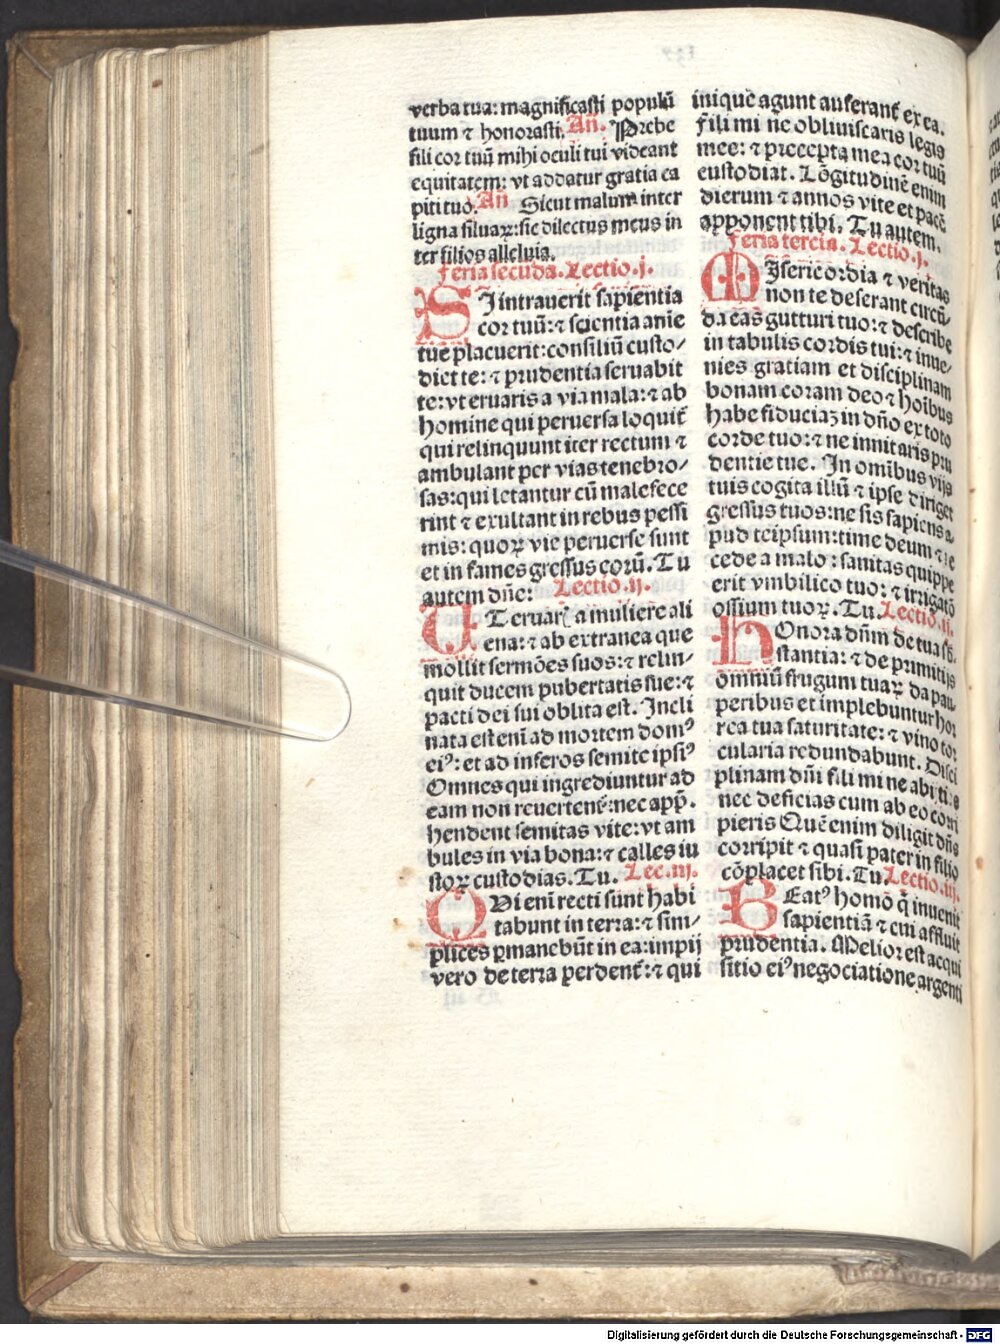 verba tua: magnificasti populū
tuum ⁊ honorasti. Añ. Prebe
fili cor tuū mihi oculi tui videant
equitatem: vt addatur gratia ca
piti tuo. Añ Sicut malum inter
ligna siluaꝝ: sic dilectus meus in
ter filios alleluia.
Feria secūda. Lectio .j.
SI intrauerit sapientia
cor tuū: ⁊ scientia anie
tue placuerit: consiliū custo/
diet te: ⁊ prudentia seruabit
te: vt eruaris a via mala: ⁊ ab
homine qui peruersa loquit̄
qui relinquunt iter rectum ⁊
ambulant per vias tenebro/
sas: qui letantur cū malefece
rint ⁊ exultant in rebus pessi
mis: quoꝝ vie peruerse sunt
et infames gressus eorū. Tu
autem dn̄e: Lectio .ij.
UT eruaris a muliere ali
ena: ⁊ ab extranea que
mollit sermōes suos: ⁊ relin-
quit ducem pubertatis sue: ⁊
pacti dei sui oblita est. Incli
nata est eni ad mortem domꝰ
eiꝰ: et ad inferos semite ipsiꝰ
Omnes qui ingrediuntur ad
eam non reuertent̄: nec app̄.
hendent semitas vite: vt am
bules in via bona: ⁊ calles iu
stoꝝ custodias. Tu. Lec. iij.
QUi eni recti sunt habi
tabunt in terra: ⁊ sim-
plices ꝑmanebūt in ea: impij
vero de terra perdent̄: ⁊ qui
iniquē agunt auferant̄ ex ea.
Fili mi ne obliuiscaris legis
mee: ⁊ precepta mea cor tuū
custodiat. Lōgitudinē enim
dierum ⁊ annos vite et pacē
apponent tibi. Tu autem.
Feria tercia. Lectio .j.
MIsericordia ⁊ veritas
non te deserant circū-
da eas gutturi tuo: ⁊ describe
in tabulis cordis tui: ⁊ inue-
nies gratiam et disciplinam
bonam coram deo ⁊ hoībus
habe fiduciaꝫ in dn̄o ex toto
corde tuo: ⁊ ne innitaris pru
dentie tue. In omībus vijs
tuis cogita illū ⁊ ipse diriget
gressus tuos: ne sis sapiens a-
pud teipsum: time deum ⁊ re
cede a malo: sanitas quippe
erit vmbilico tuo: ⁊ irrigatō
ossium tuoꝝ. Tu. Lectio. ij.
HOnora dn̄m de tua sb̄-
stantia: ⁊ de primitijs
omniū frugum tuaꝝ da pau
peribus et implebuntur hor
rea tua saturitate: ⁊ vino tor
cularia redundabunt. Disci
plinam dn̄i fili mi ne abijcias
nec deficias cum ab eo corri
pieris Quē enim diligit dn̄s
corripit ⁊ quasi pater in filio
cōplacet sibi. Tu. Lectio. iij.
BEatꝰ homo q̄ inuenit
sapientiā ⁊ cui affluit
prudentia. Melior est acqui
sitio eiꝰ negociatione argenti
Digitalisierung gefördert durch die Deutsche Forschungsgemeinschaft - DFG